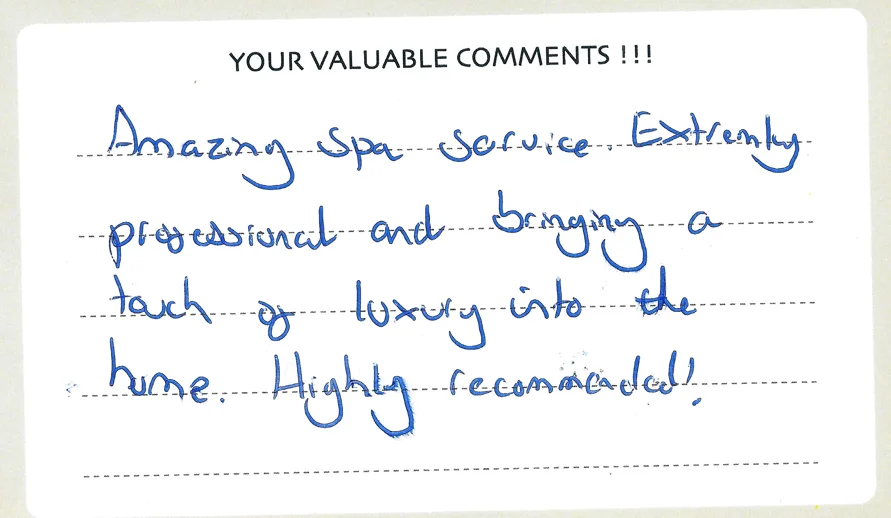 YOUR VALUABLE COMMENTS !!!
Amazing Spa Service. Extremly
professional and bringing a
touch of luxury into the
home. Highly recommended!